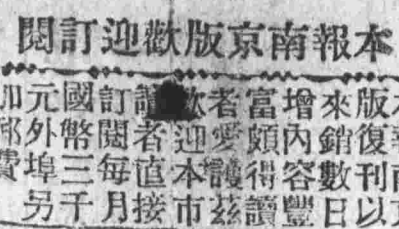 本報南京版歡迎訂閱
本報南京
版復刊以
來銷數日
增內容豐
富頗得讀
者愛護茲
歡迎本市
讀者直接
訂閱每月
國幣三千
元外埠另
加郵費